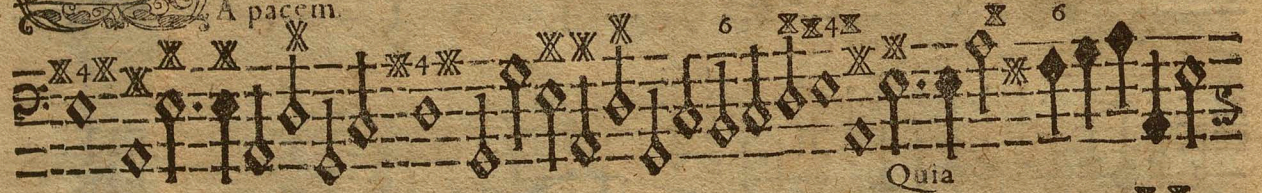 A pacem
4 4 6 4 6
Quia